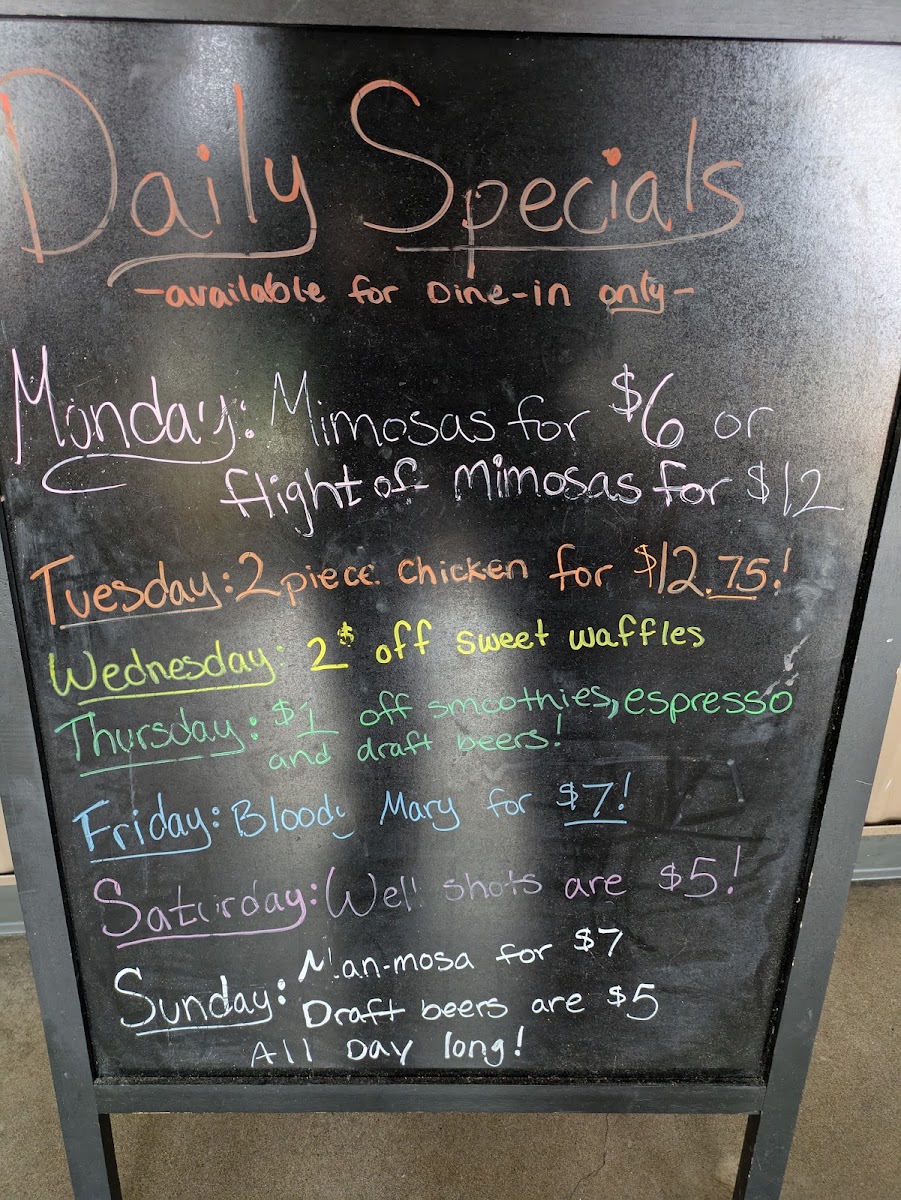 Daily Specials
-available for Dine-in only-
Monday: Mimosas for $6 or
flight of mimosas for $12
Tuesday: 2 piece chicken for $12.75!
Wednesday: 2$ off sweet waffles
Thursday: $1 off smoothies, espresso
and draft beers!
Friday: Bloody Mary for $7!
Saturday: Well shots are $5!
Sunday: Man-mosa for $7
Draft beers are $5
All Day long!